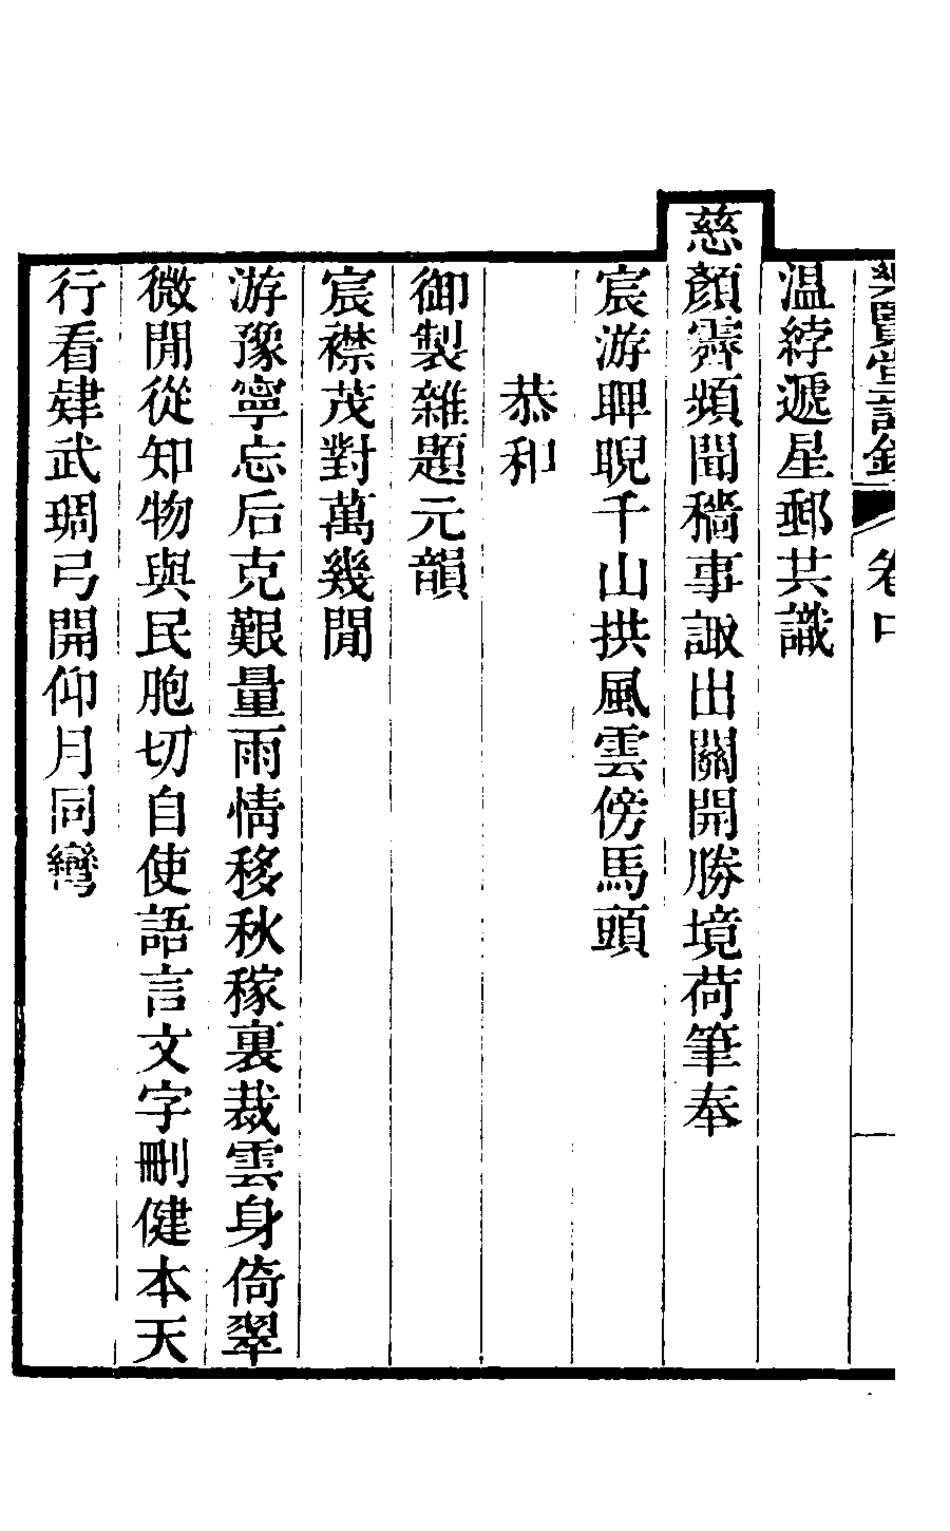 樂賢堂詩鈔 卷中
温綍遞星郵共識
慈顏霽頻聞穡事諏出關開勝境荷筆奉
宸游睥睨千山拱風雲傍馬頭
恭和
御製雜題元韻
宸襟茂對萬幾閒
游豫寧忘后克艱量雨情移秋稼裏裁雲身倚翠
微閒從知物與民胞切自使語言文字刪健本天
行看肄武琱弓開仰月同彎